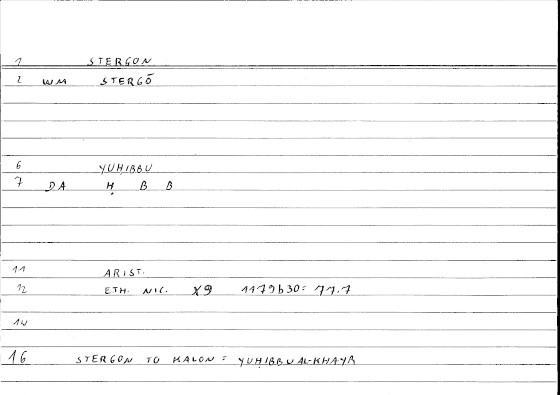 1 STERGON
2 WM STERGŌ
6 YUḤIBBU
7 DA Ḥ B B
11 ARIST.
12 ETH. NIC. X9 1179b30 = 77.7
14
16 STERGON TO KALON = YUḤIBBU AL-KHAYR